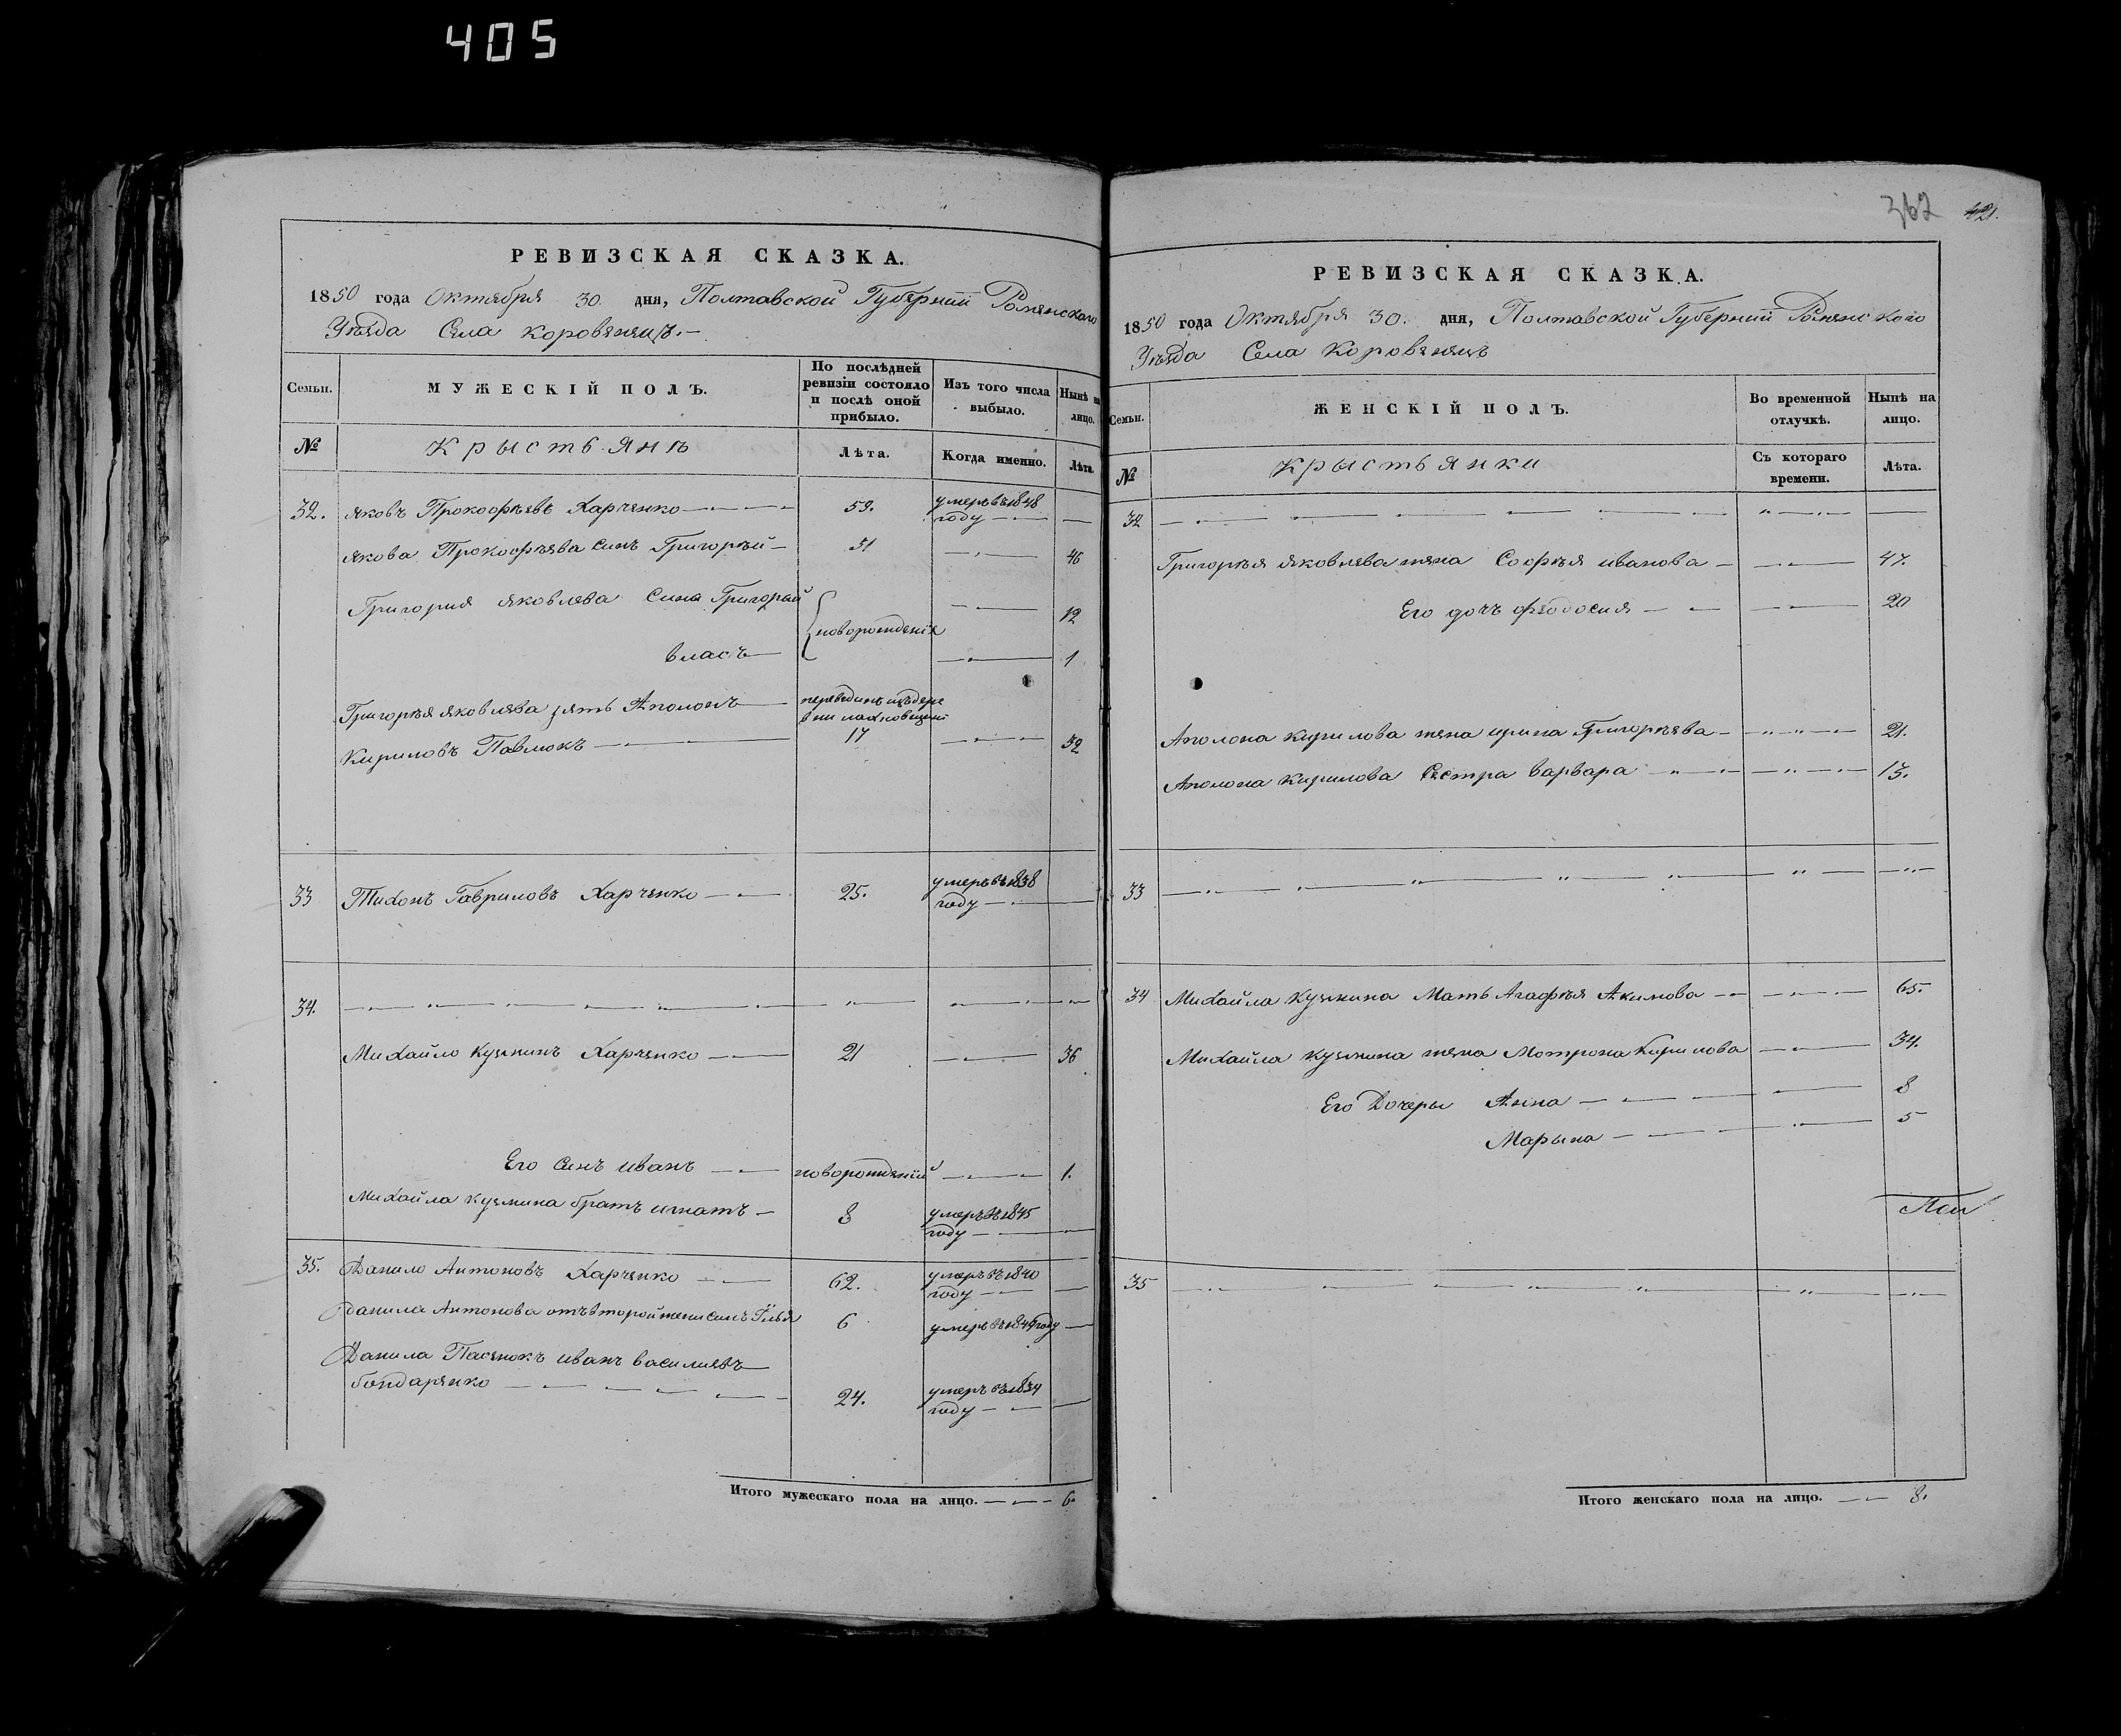 405
РЕВИЗСКАЯ СКАЗКА.
1850 года Октября 30. дня, Полтавской Губерніи Роменского
Уезда Села Коровенецъ.
Семьи.
МУЖЕСКІЙ ПОЛЪ.
По послѣдней ревизіи состояло и послѣ оной прибыло.
Изъ того числа выбыло.
Нынѣ на лицо.
№
Крысть янъ
Лѣта.
Когда именно.
Лѣта.
32. яковъ Прокофѣевъ Харченко 59. умеръ въ 1848 году
якова Прокофѣева синъ Григорѣй 31 46
Григория яковлева сины Григорый 12
новорожденіе
власъ 1
Григорѣя яковлева зять Аполонъ
Кириловъ Павлюкъ 17 32
33 Тихонъ Гавриловъ Харченко 25. умеръ въ 1838 году
34.
Михайло кузминъ Харченко 21 36
Его синъ иванъ новорожденій 1.
Михайла кузмина братъ игнатъ 8 умеръ въ 1845 году
35. Данило Антоновъ Харченко 62. умеръ въ 1840 году
данила Антонова отъ второй жени синъ 6 умеръ въ году
Данила Пасенокъ иванъ василиевъ
бондаренко 24. умеръ въ 1834 году
Итого мужескаго пола на лицо. 6.
362 421.
РЕВИЗСКАЯ СКАЗКА.
1850 года Октября 30. дня, Полтавской Губерніи Роменского
Уезда Села Коровенецъ
Семьи.
ЖЕНСКІЙ ПОЛЪ.
Во временной отлучкѣ.
Нынѣ на лицо.
№
Крысть янки
Съ котораго времени.
Лѣта.
32
Григорѣя яковлева жена Софѣя иванова 47.
Его дочъ феодосия 20
Аполона кирилова жена ирина Григорѣева 21.
Аполона кирилова Сестра варвара 13.
33
34 Михайла кузмина Мать Агафѣя Акимова 65.
Михайла кузмина жена Мотрона Кирилова 34.
Его Дочеры Анна 8
Марына 5
35
Итого женскаго пола на лицо. 8.